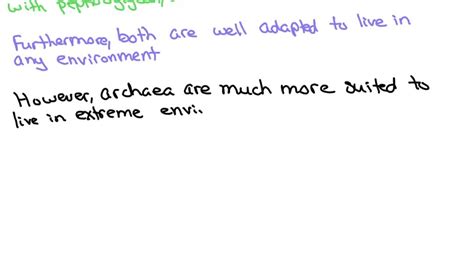 with
Furthermore, both are well adapted to live in
any environment
However, archaea are much more suited to
live in extreme envi..